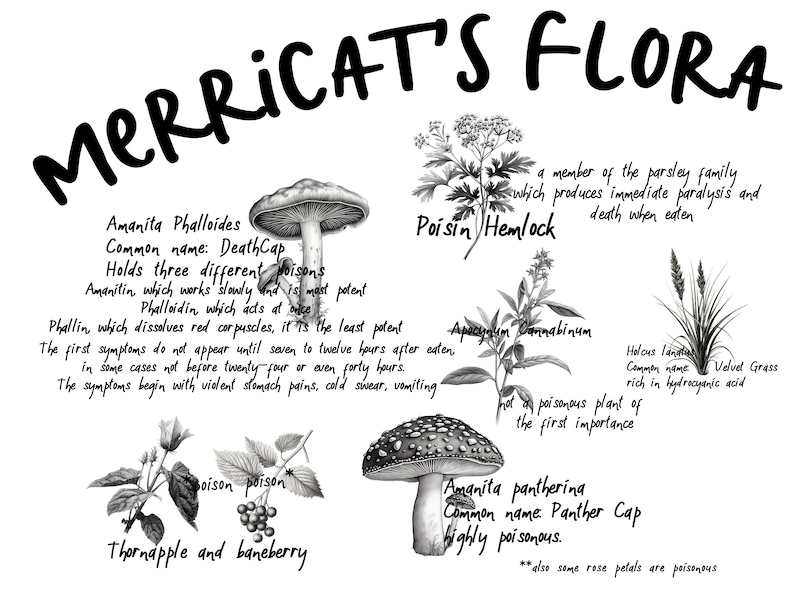 MERRICAT'S FLORA
a member of the parsley family
which produces immediate paralysis and
death when eaten
Poisin Hemlock
Amanita Phalloides
Common name: DeathCap
Holds three different poisons
Amanitin, which works slowly and is most potent
Phalloidin, which acts at once
Phallin, which dissolves red corpuscles, it is the least potent
The first symptoms do not appear until seven to twelve hours after eaten,
in some cases not before twenty-four or even forty hours.
The symptoms begin with violent stomach pains, cold swear, vomiting
Apocynum Cannabinum
not a poisonous plant of
the first importance
Holcus lanatus
Common name: Velvet Grass
rich in hydrocyanic acid
*poison poison*
Thornapple and baneberry
Amanita pantherina
Common name: Panther Cap
highly poisonous.
**also some rose petals are poisonous